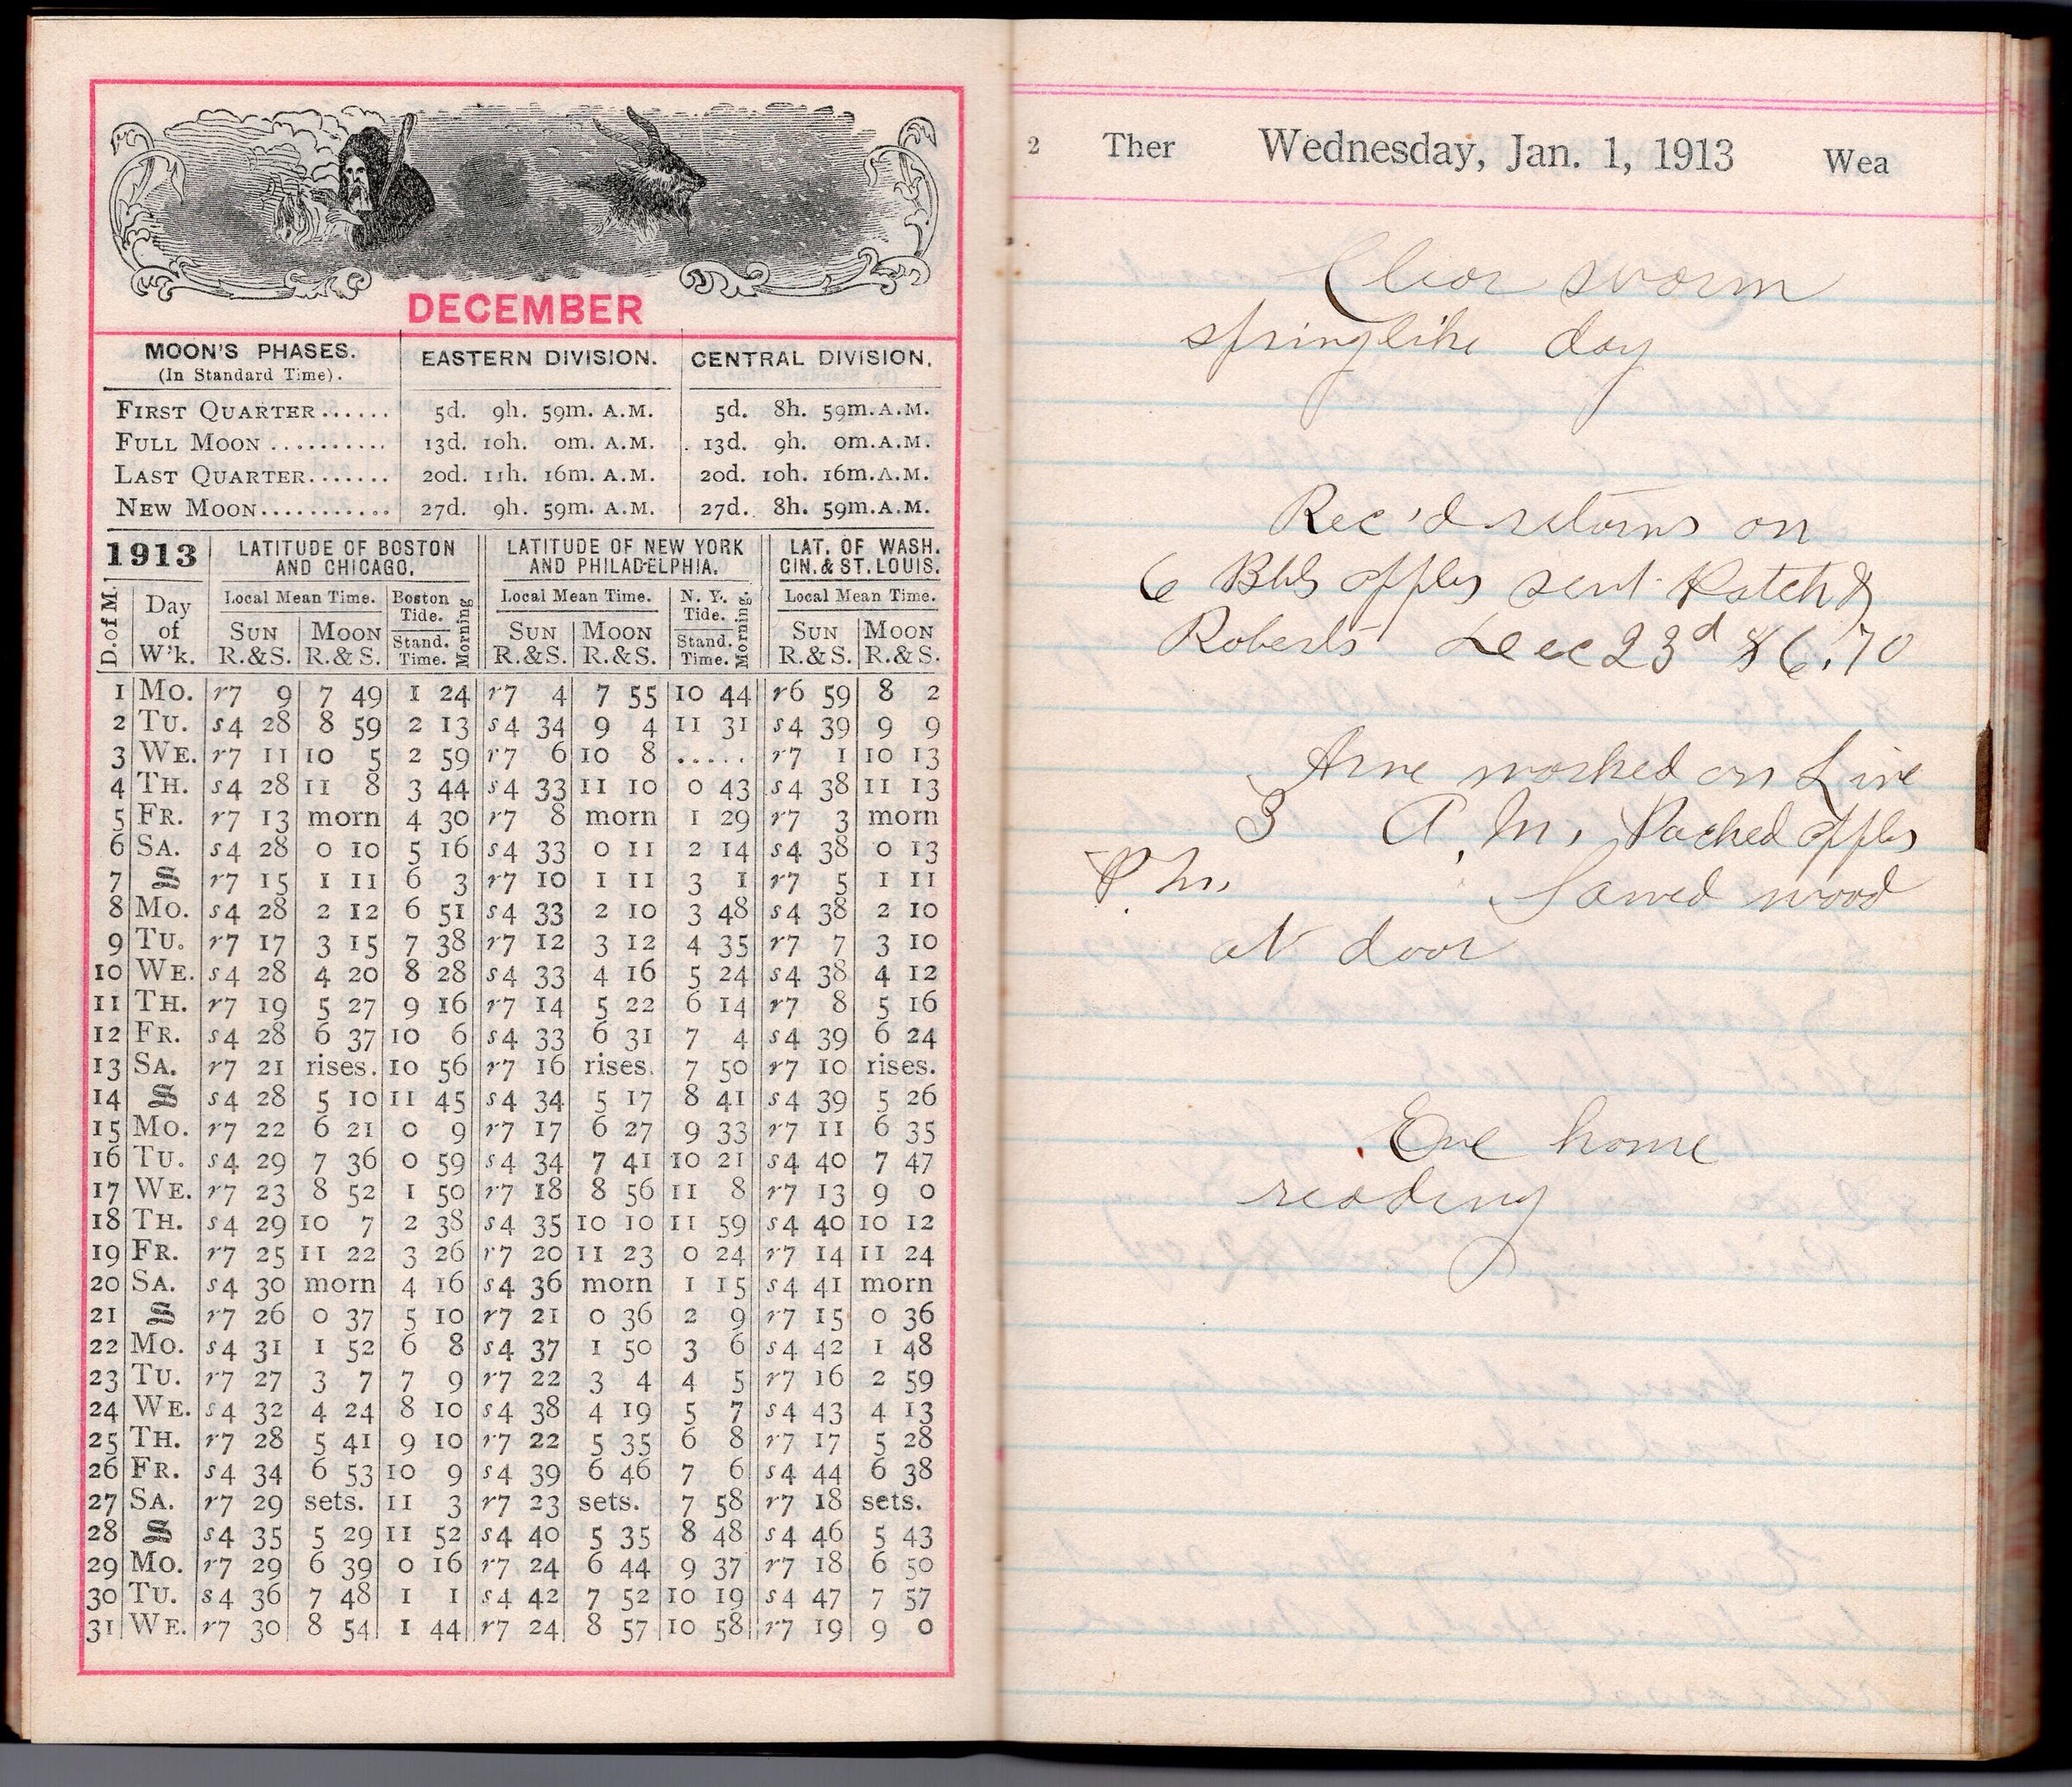 DECEMBER
MOON'S PHASES. EASTERN DIVISION. CENTRAL DIVISION.
(In Standard Time).
FIRST QUARTER...... 5d. 9h. 59m. A.M. 5d. 8h. 59m. A.M.
FULL MOON.......... 13d. 10h. 0m. A.M. 13d. 9h. 0m. A.M.
LAST QUARTER....... 20d. 11h. 16m. A.M. 20d. 10h. 16m. A.M.
NEW MOON........... 27d. 9h. 59m. A.M. 27d. 8h. 59m. A.M.
1913 LATITUDE OF BOSTON AND CHICAGO. LATITUDE OF NEW YORK AND PHILADELPHIA. LAT. OF WASH. CIN. & ST. LOUIS.
D. of M. Day of W'k. Local Mean Time. Boston Tide. Morning Local Mean Time. N. Y. Tide. Morning. Local Mean Time.
SUN R.&S. MOON R.&S. Stand. Time. SUN R.&S. MOON R.&S. Stand. Time. SUN R.&S. MOON R.&S.
1 MO. r7 9 7 49 1 24 r7 4 7 55 10 44 r6 59 8 2
2 TU. s4 28 8 59 2 13 s4 34 9 4 11 31 s4 39 9 9
3 WE. r7 11 10 5 2 59 r7 6 10 8 ..... r7 1 10 13
4 TH. s4 28 11 8 3 44 s4 33 11 10 0 43 s4 38 11 13
5 FR. r7 13 morn 4 30 r7 8 morn 1 29 r7 3 morn
6 SA. s4 28 0 10 5 16 s4 33 0 11 2 14 s4 38 0 13
7 S r7 15 1 11 6 3 r7 10 1 11 3 1 r7 5 1 11
8 MO. s4 28 2 12 6 51 s4 33 2 10 3 48 s4 38 2 10
9 TU. r7 17 3 15 7 38 r7 12 3 12 4 35 r7 7 3 10
10 WE. s4 28 4 20 8 28 s4 33 4 16 5 24 s4 38 4 12
11 TH. r7 19 5 27 9 16 r7 14 5 22 6 14 r7 8 5 16
12 FR. s4 28 6 37 10 6 s4 33 6 31 7 4 s4 39 6 24
13 SA. r7 21 rises. 10 56 r7 16 rises. 7 50 r7 10 rises.
14 S s4 28 5 10 11 45 s4 34 5 17 8 41 s4 39 5 26
15 MO. r7 22 6 21 0 9 r7 17 6 27 9 33 r7 11 6 35
16 TU. s4 29 7 36 0 59 s4 34 7 41 10 21 s4 40 7 47
17 WE. r7 23 8 52 1 50 r7 18 8 56 11 8 r7 13 9 0
18 TH. s4 29 10 7 2 38 s4 35 10 10 11 59 s4 40 10 12
19 FR. r7 25 11 22 3 26 r7 20 11 23 0 24 r7 14 11 24
20 SA. s4 30 morn 4 16 s4 36 morn 1 15 s4 41 morn
21 S r7 26 0 37 5 10 r7 21 0 36 2 9 r7 15 0 36
22 MO. s4 31 1 52 6 8 s4 37 1 50 3 6 s4 42 1 48
23 TU. r7 27 3 7 7 9 r7 22 3 4 4 5 r7 16 2 59
24 WE. s4 32 4 24 8 10 s4 38 4 19 5 7 s4 43 4 13
25 TH. r7 28 5 41 9 10 r7 22 5 35 6 8 r7 17 5 28
26 FR. s4 34 6 53 10 9 s4 39 6 46 7 6 s4 44 6 38
27 SA. r7 29 sets. 11 3 r7 23 sets. 7 58 r7 18 sets.
28 S s4 35 5 29 11 52 s4 40 5 35 8 48 s4 46 5 43
29 MO. r7 29 6 39 0 16 r7 24 6 44 9 37 r7 18 6 50
30 TU. s4 36 7 48 1 1 s4 42 7 52 10 19 s4 47 7 57
31 WE. r7 30 8 54 1 44 r7 24 8 57 10 58 r7 19 9 0
2 Ther Wednesday, Jan. 1, 1913 Wea
Clear warm
springlike day
Rec'd returns on
6 Bbls apples sent Patch &
Roberts Dec 23d $6.70
Arne worked on Line
3 A.M. Packed apples
P.M. Sawed wood
at door
Eve home
reading